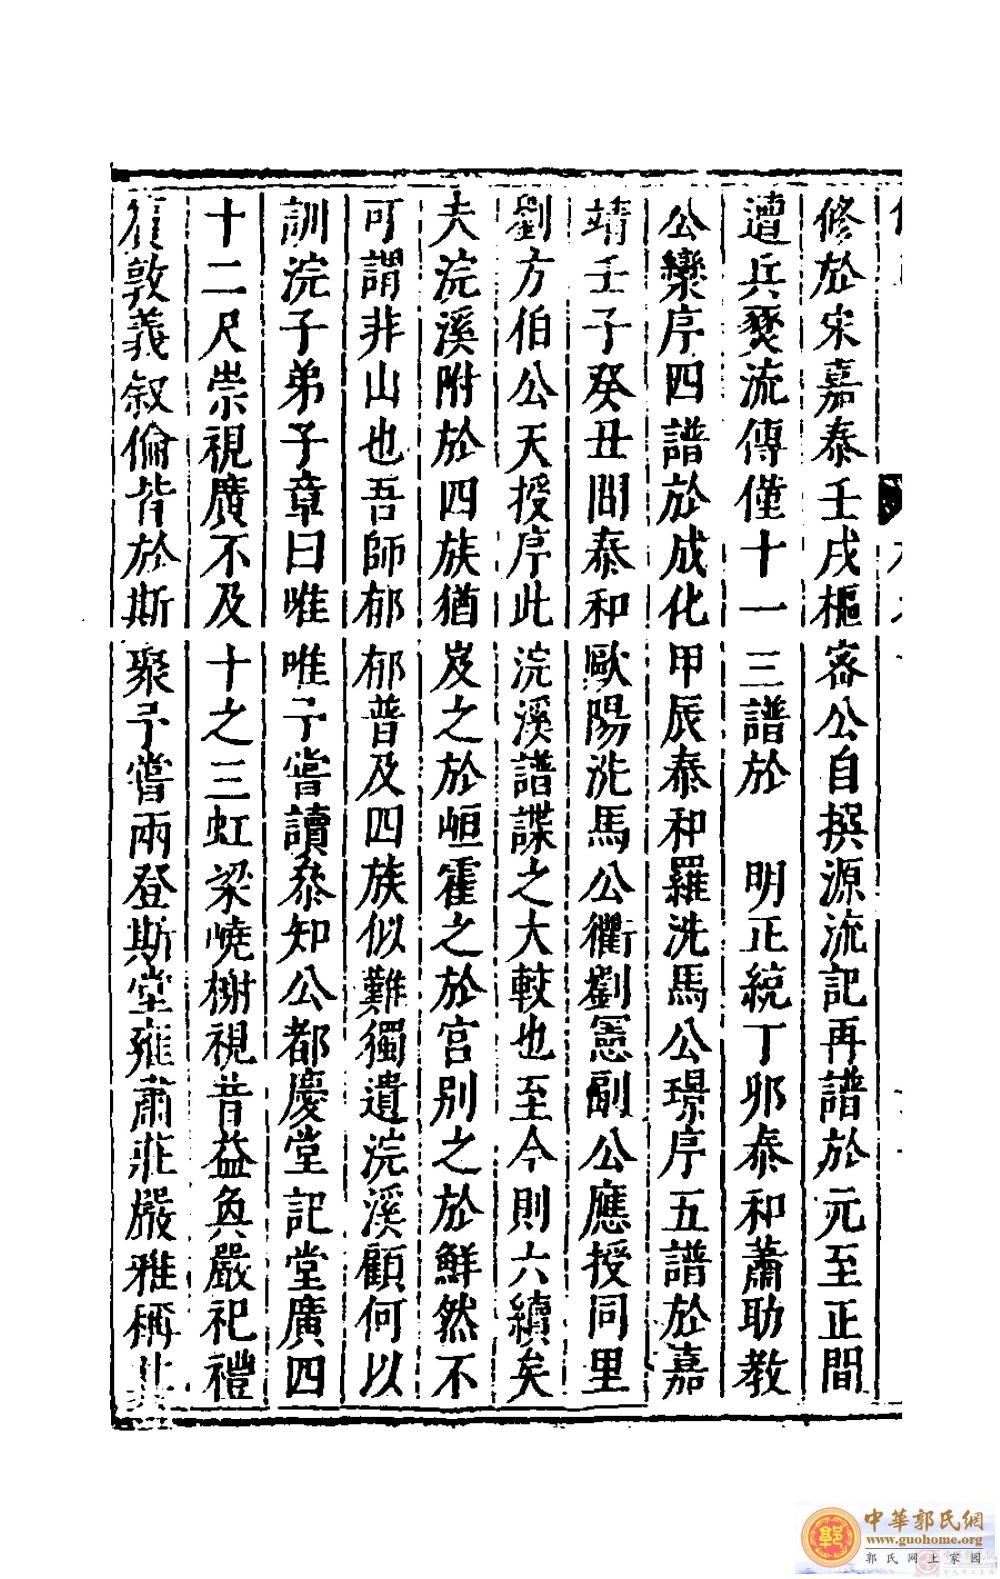 修於宋嘉泰壬戌樞密公自撰源流記再譜於元至正間
遭兵燹流傳僅十一三譜於　明正統丁卯泰和蕭助教
公欒序四譜於成化甲辰泰和羅洗馬公璟序五譜於嘉
靖壬子癸丑間泰和歐陽洗馬公衢劉憲副公應授同里
劉方伯公天授序此浣溪譜諜之大較也至今則六續矣
夫浣溪附於四族猶岌之於峘霍之於宮别之於鮮然不
可謂非山也吾師郁郁普及四族似難獨遺浣溪顧何以
訓浣子弟子章曰唯唯予嘗讀叅知公都慶堂記堂廣四
十二尺崇視廣不及十之三虹梁嶢榭視昔益奐嚴祀禮
敦義叙倫皆於斯聚予嘗兩登斯堂雍肅莊嚴雅稱
中華郭氏網
www.guohome.org
郭氏网上家園